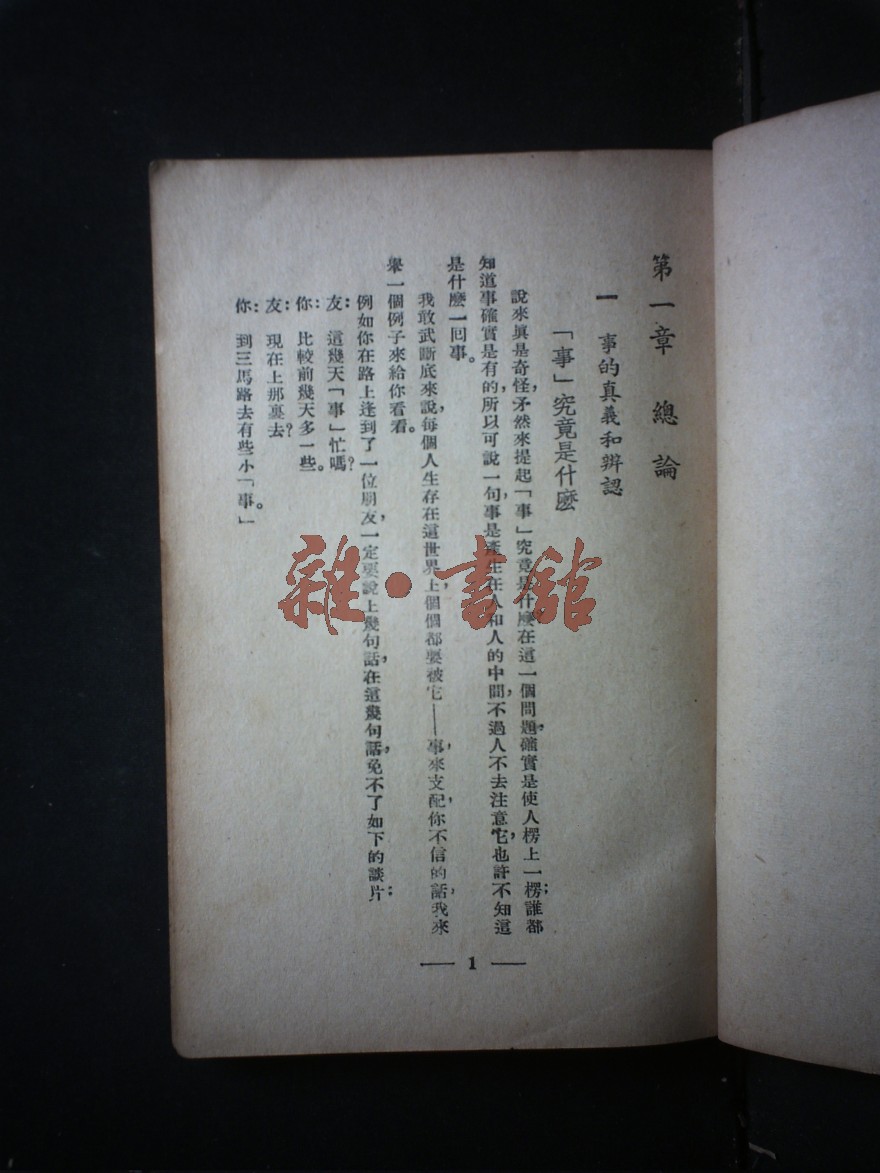 第一章 總論
一 事的真義和辨認
「事」究竟是什麼
說來眞是奇怪,矛然來提起「事」究竟是什麼在這一個問題,確實是使人楞上一楞;誰都
知道事確實是有的,所以可說一句,事是產生在人和人的中間,不過人不去注意,它也許不知這
是什麼一回事。
我敢武斷底來說,每個人生存在這世界上,個個都要被它——事,來支配,你不信的話,我來
舉一個例子來給你看看。
例如你在路上逢到了一位朋友,一定要說上幾句話,在這幾句話,免不了如下的談片:
友:這幾天「事」忙嗎?
你:比較前幾天多一些。
友:現在上那裏去?
你:到三馬路去有些小「事。」
1
雜·書館